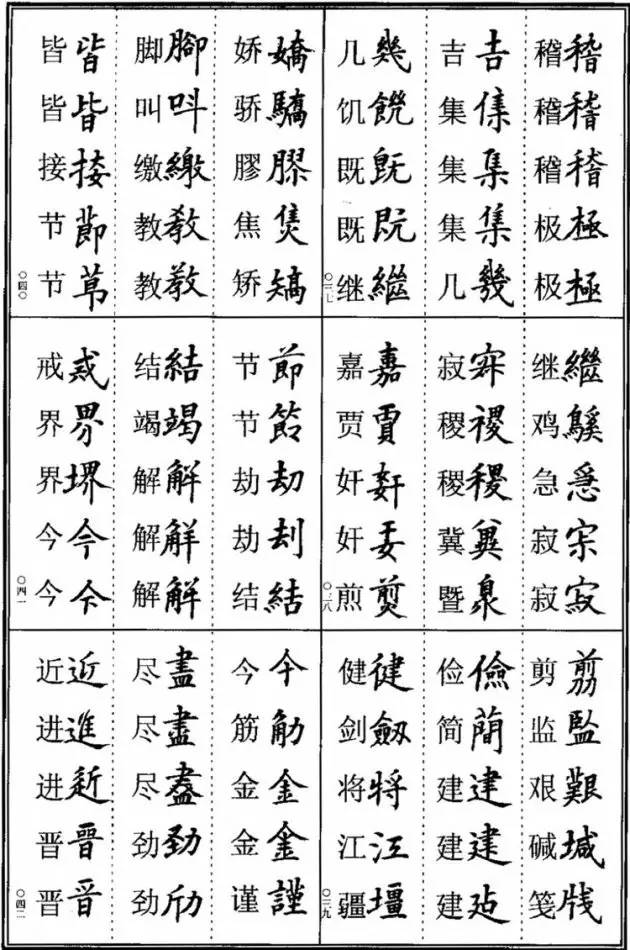 稽稽 稽稽 稽稽 极極 极極
吉吉 集集 集集 集集 几幾
几幾 饥饑 既既 既既 继繼
〇三七
继繼 鸡鷄 急急 寂 寂寂
寂 稷稷 稷稷 冀冀 暨
嘉嘉 贾賈 奸奸 奸 煎煎
〇三八
剪剪 监監 艰艱 碱堿 笺牋
俭儉 简簡 建建 建建 建建
健健 剑劔 将将 江江 疆壃
〇三九
娇嬌 骄驕 膠膠 焦焦 矫矯
脚腳 叫叫 缴繳 教教 教教
皆皆 皆皆 接接 节節 节莭
〇四〇
节節 节節 劫劫 劫刦 结結
结結 竭竭 解解 解觧 解觧
戒戒 界界 界堺 今今 今今
〇四一
今今 筋筋 金金 金金 谨謹
尽盡 尽盡 尽盡 劲勁 劲
近近 进進 进 晋晉 晋晋
〇四二